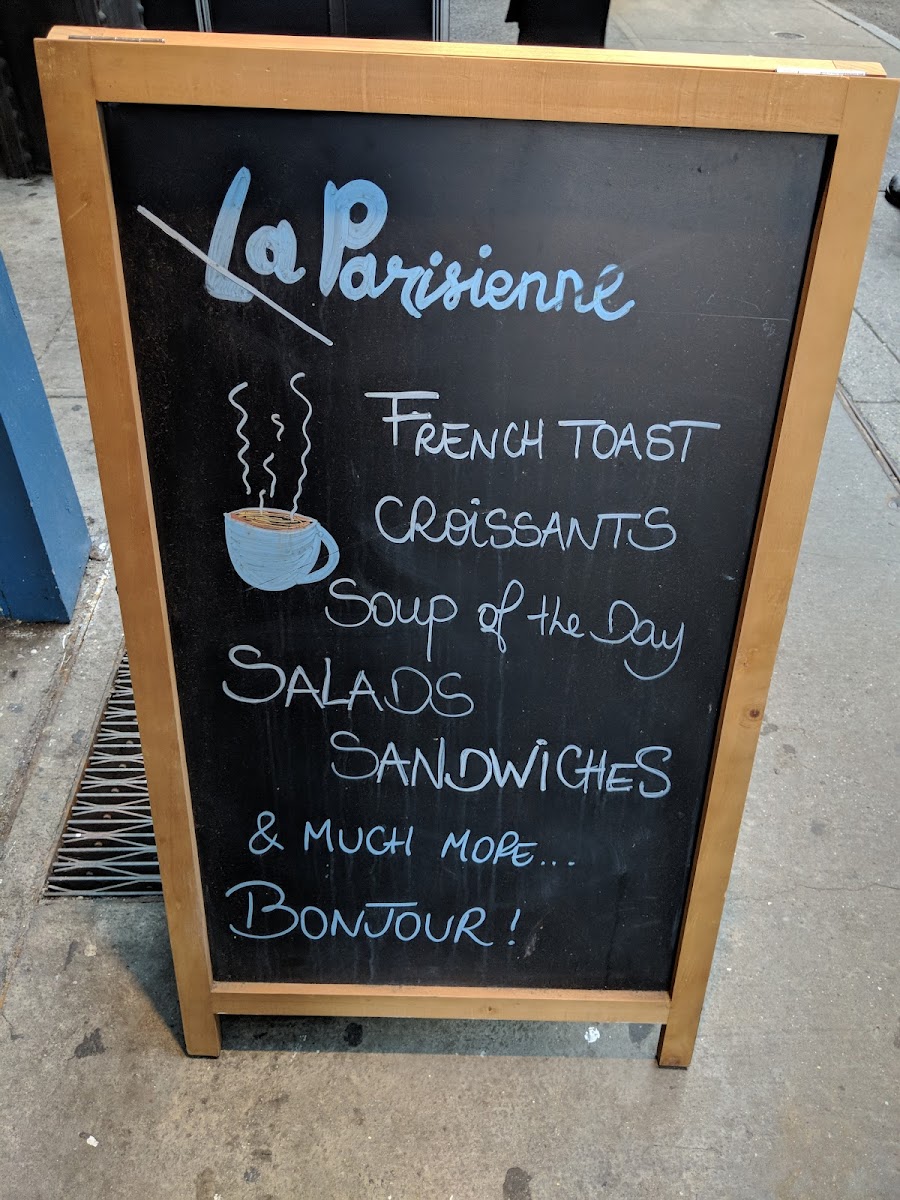 La Parisienne
FRENCH TOAST
CROiSSANTS
Soup of the Day
SALADS
SANDWiCHES
& MUCH MORE...
BONJOUR!